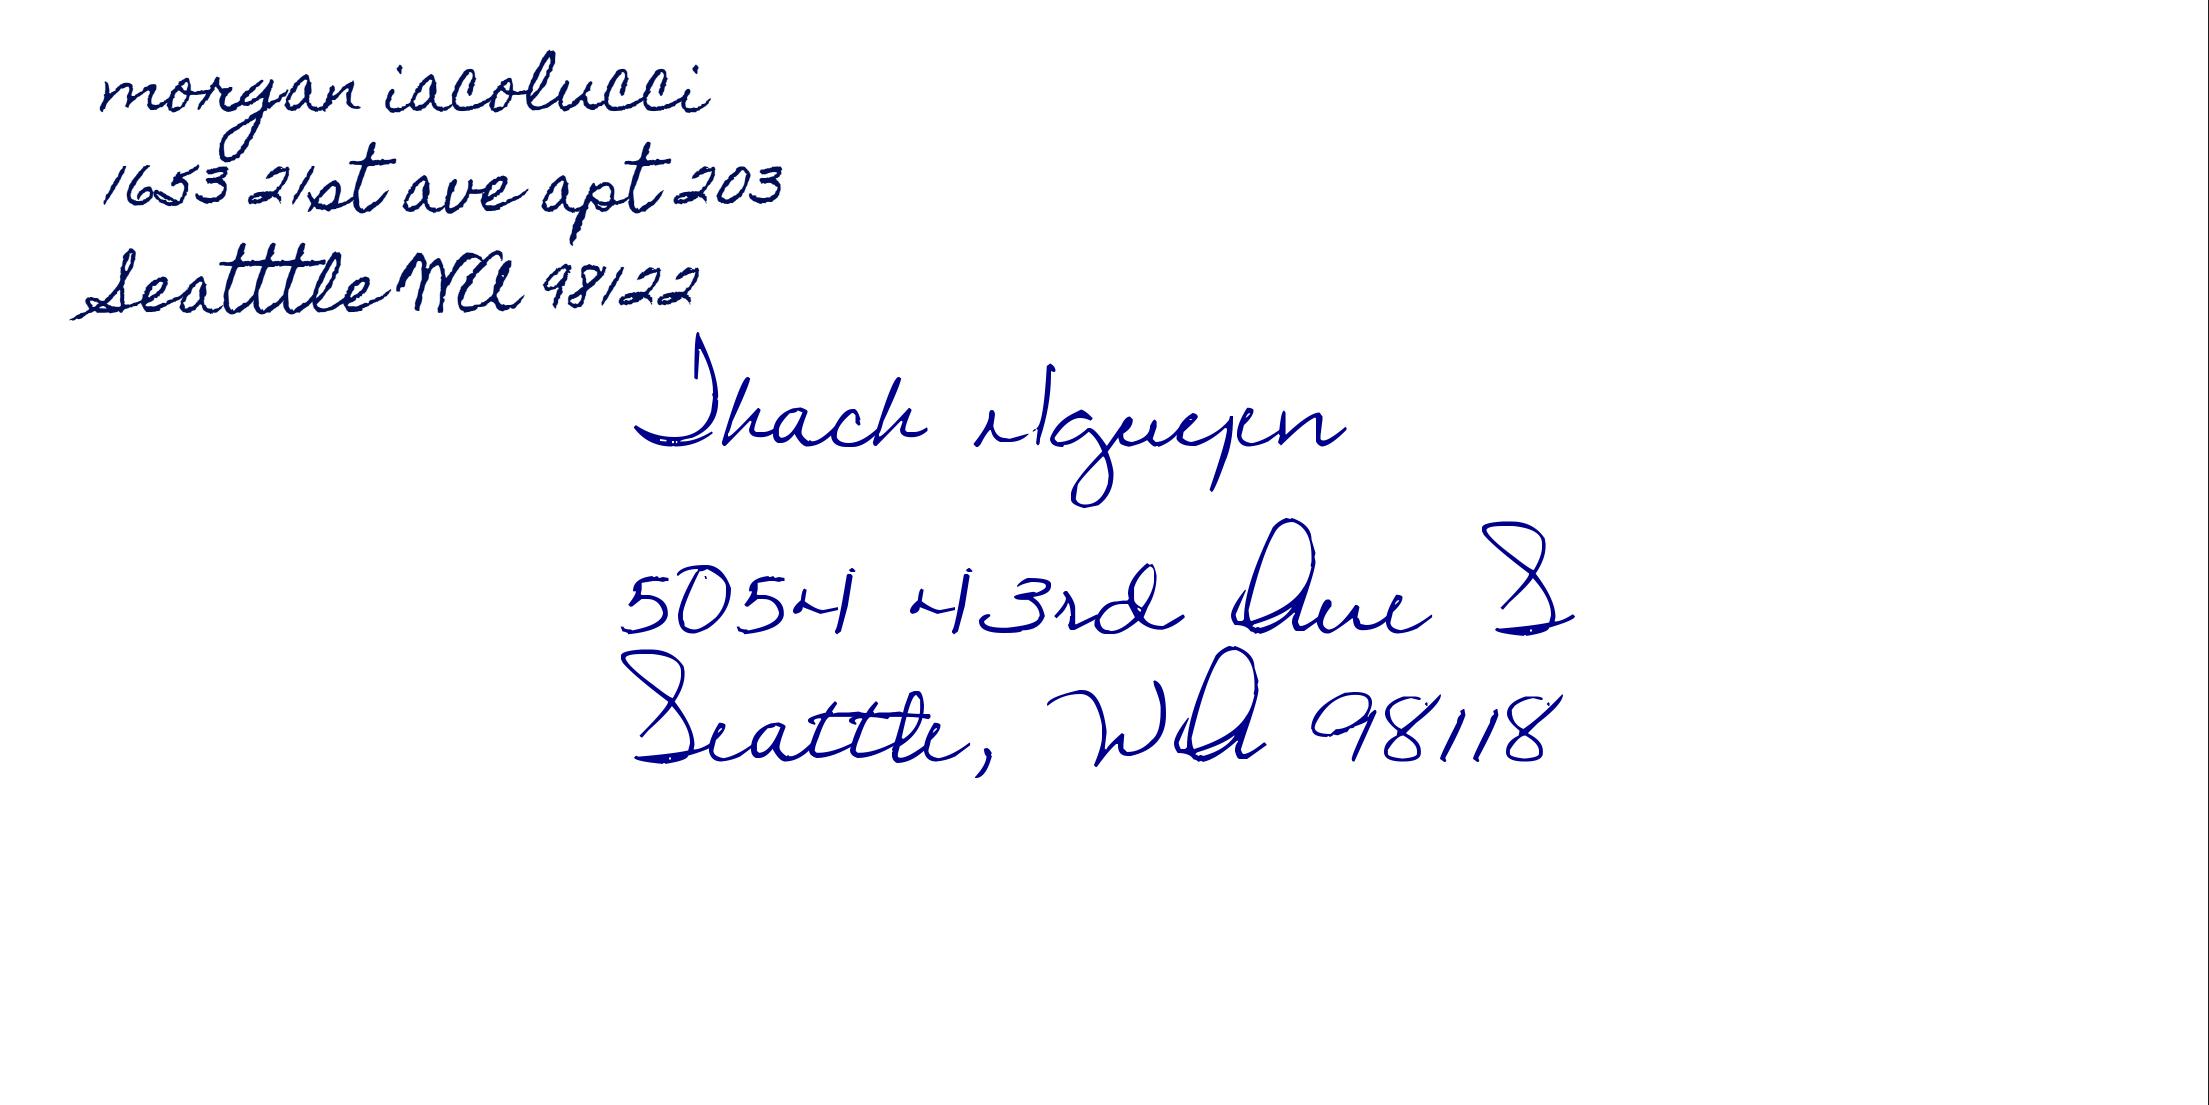 morgan iacolucci
1653 21st ave apt 203
Seatttle WA 98122
Thach Nguyen
5054 43rd Ave S
Seattle, WA 98118